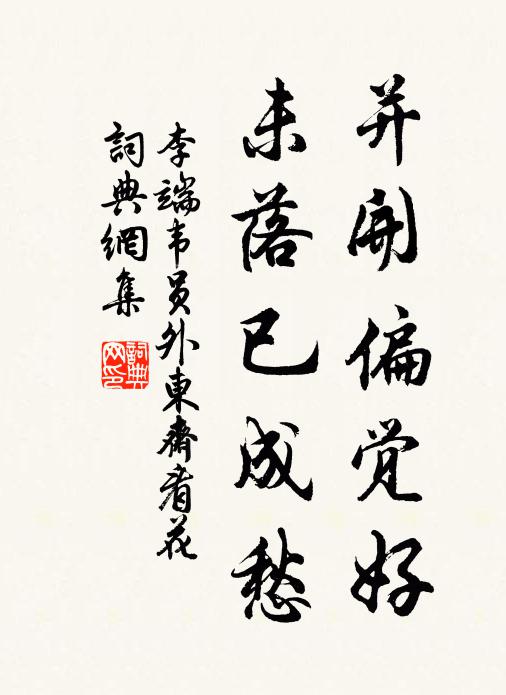 并開偏覚好
未落已成愁
李端韦員外東齋看花
詞典網集
詞典
网印